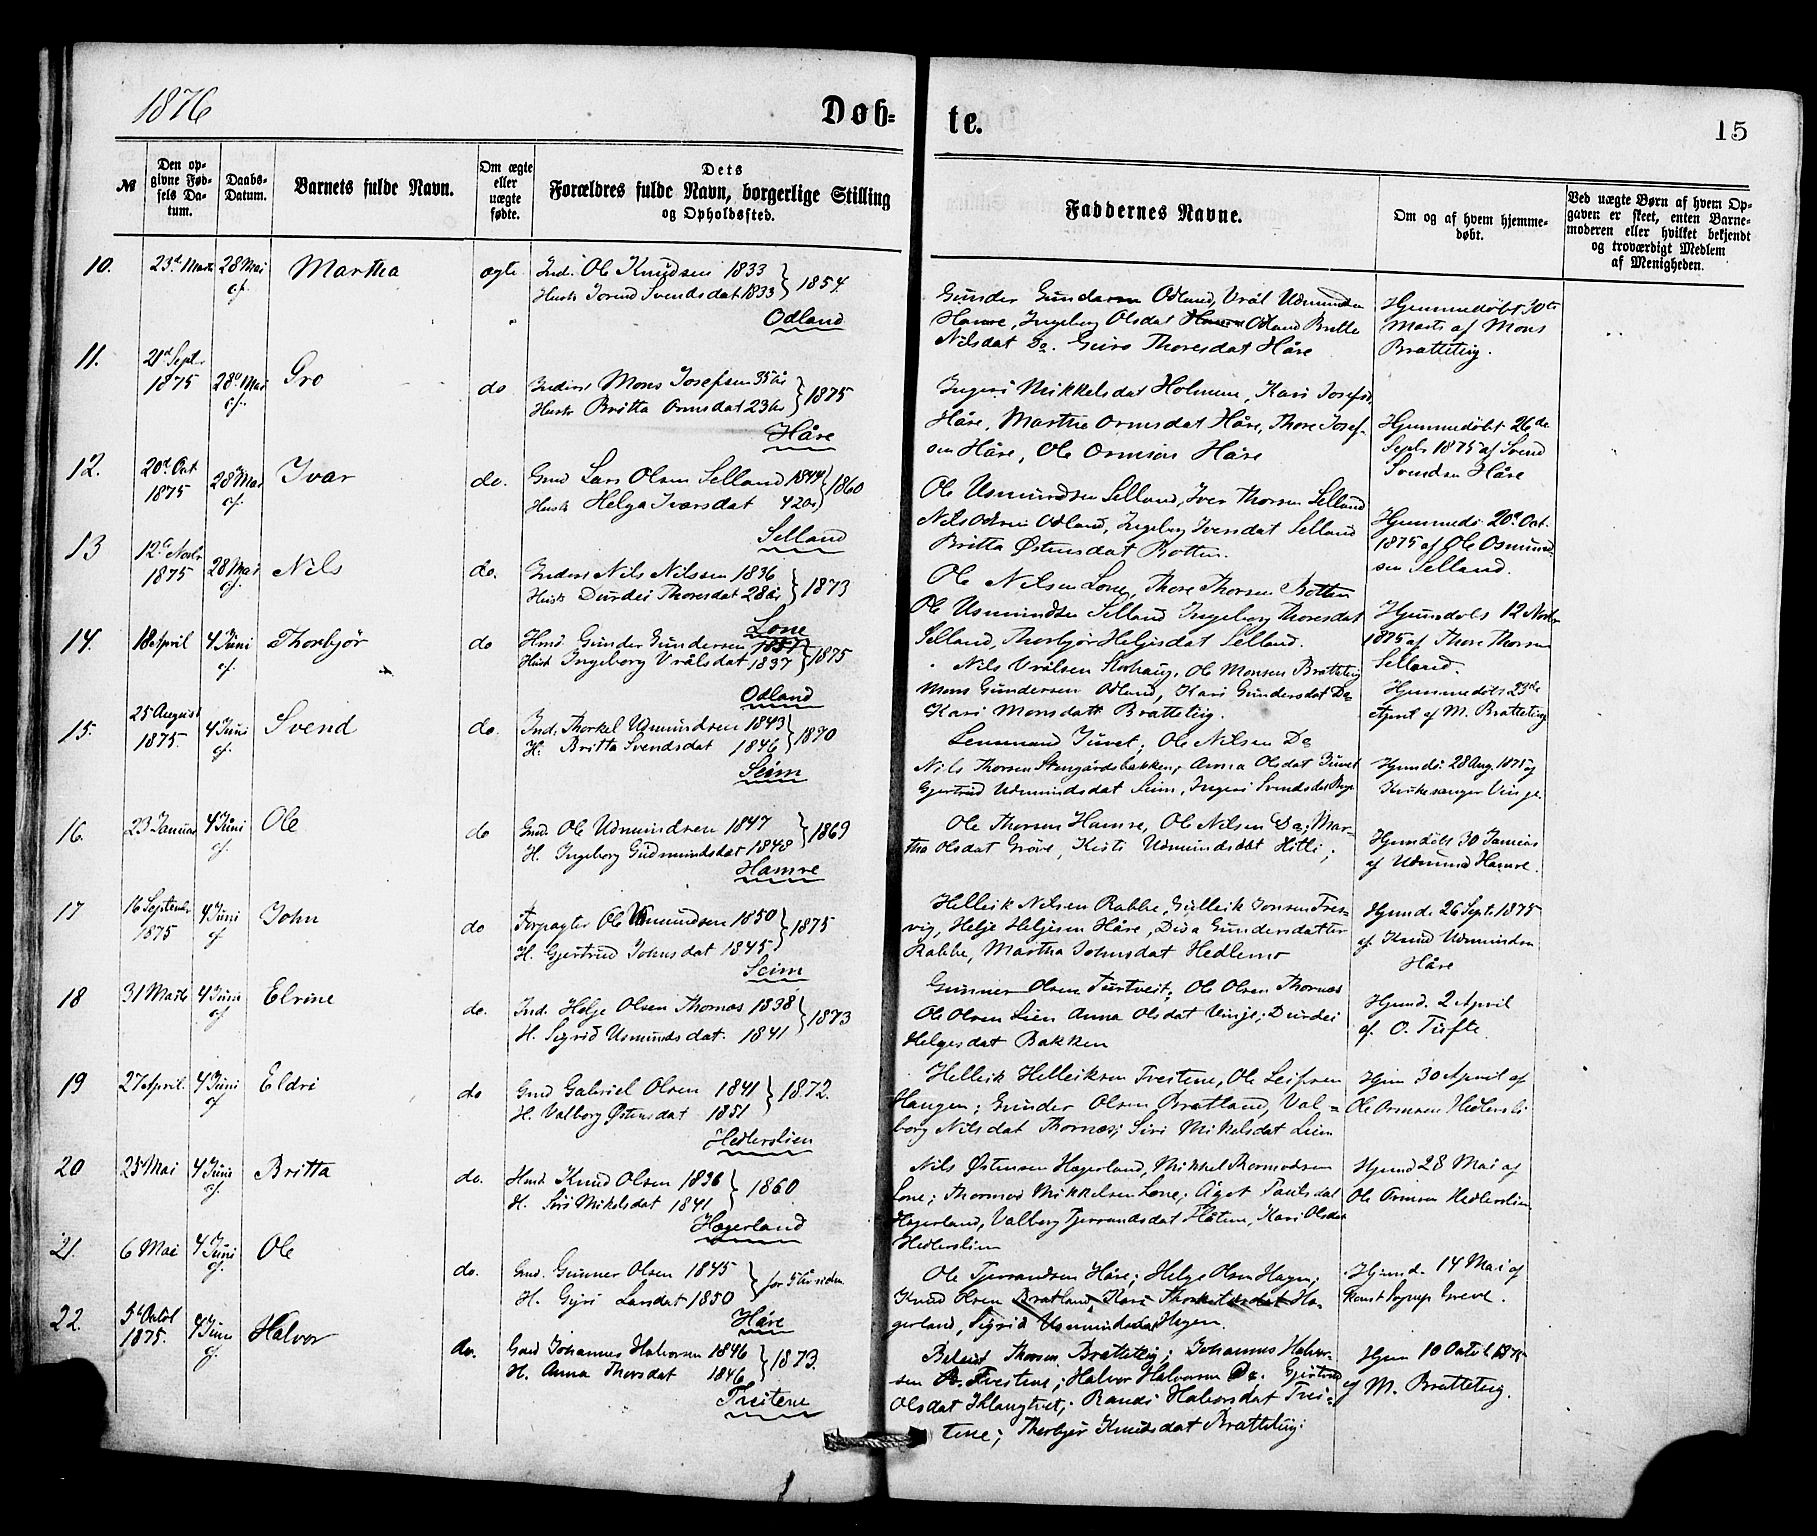 1876
Døb=
te.
15
№
Den op-
givne Fød-
sels Da-
tum.
Daabs-
Datum.
Barnets fulde Navn.
Om ægte
eller
uægte
fødte.
Dets
Forældres fulde Navn, borgerlige Stilling
og Opholdssted.
Faddernes Navne.
Om og af hvem hjemme-
døbt.
Ved uægte Børn af hvem Op-
gaven er skeet, enten Barne-
moderen eller hvilket bekjendt
og troværdigt Medlem
af Menigheden.
10.
23d Marts
28 Mai
cf.
Martha
ægte
Ind. Ole Knudsen 1833
Hustr Jorend Svendsdat 1833 } 1854
Odland
Gunder Gundersen Odland, Vrål Udmundsen
Hamre, Ingeborg Olsdat Odland Britte
Nilsdat Do. Guro Thoresdat Håre
Hjemmedøbt 30te
Marts af Mons
Bratteteig.
11.
21d Sept.
1875
28d Mai
cf.
Gro
do
Inders Mons Josefsen 35 år
Hustr Britta Ormsdat 23 år } 1875
Håre
Ingeri Mikkelsdat Holmene, Kari Josefsd.
Håre, Martha Ormsdat Håre, Thore Josef-
sen Håre, Ole Ormson Håre
Hjemmedøbt 26de
Sept. 1875 af Svend
Svendsen Håre
12.
20d Oct
1875
28 Mai
cf.
Ivar
do.
Gmd Lars Olsen Selland 1844
Hustr Helga Ivarsdat 42 år } 1860
Selland
Ole Usmundsen Selland, Iver Thorsen Selland
Nils Olsen Odland, Ingeborg Iversdat Selland
Britta Østensdat Botten.
Hjemmedø. 20d Oct.
1875 af Ole Osmund-
sen Selland.
13
12d Novbr
1875
28 Mai
cf.
Nils
do.
Inders Nils Nilssen 1836
Hustr Durdei Thoresdat 28 år } 1873
Lone
Ole Nilsen Lone, Thore Thorsen Botten
Ole Usmundsen Selland Ingeborg Thoresdat
Selland, Thorbjør Heljesdat Selland.
Hjemdøbt 12 Novbr
1875 af Thore Thorsen
Selland.
14.
18 April
4 Juni
cf.
Thorbjør
do
Hmd Gunder Gundersen
Hust Ingeborg Vrålsdat 1837 } 1875
Odland
Nils Vrålsen Storhaug, Ole Monsen Bratteteig
Mons Gundersen Odland, Kari Gundersdat Do
Kari Monsdatt Bratteteig.
Hjemmedøbt 23de
April af M. Bratteteig
15.
25 August
1875.
4 Juni
cf.
Svend
do.
Ind. Thorkel Usmundsen 1843
H. Britta Svendsdat 1846 } 1870
Seim
Lensmand Juvet, Ole Nilsen Do
Nils Thorsen Stengårdsbakken, Anna Olsdat Juvet
Gjertrud Udmundsdat Seim, Ingeri Svendsdat
Hjemdø. 28 Aug. 1875 af
Kirkesanger Vinje.
16.
23 Januar
4 Juni
cf.
Ole
do
Gmd. Ole Udmundsen 1847
H. Ingeborg Gudmundsdat 1848 } 1869
Hamre
Ole Thorsen Hamre, Ole Nilsen Do; Mar-
tha Olsdat Grove, Kirsti Udmundsdat Hitli;
Hjemdøbt 30 Januar
af Udmund Hamre.
17
16 Septembr
1875
4 Juni
cf
John
do
Forpagter Ole Usmundsen 1850
H. Gjertrud Johnsdat 1845 } 1875
Seim
Helleik Nilsen Rabbe, Gulleik Jonsen Tres-
vig, Helje Heljesen Håre, Dida Gundersdatter
Rabbe, Martha Johnsdat Hedlemo
Hjemd. 26 Sept. 1875
af Knud Udmundsen
Håre
18
31 Marts
4 Juni
cf
Elrine
do.
Ind. Helje Olsen Thornæs 1838
H. Sigrid Usmundsdat. 1841 } 1873
Gunner Olsen Turtveit; Ole Olsen Thornæs
Ole Olsen Lien Anna Olsdat Vinje; Durdei
Helgesdat Bakken
Hjemd. 2 April
af O. Tufte.
19
27 April.
4 Juni
cf
Eldri
do
Gmd Gabriel Olsen 1841
H. Valborg Østensdat 1851 } 1872.
Hedlerslien
Helleik Helleiksen Tveitene, Ole Leifsen
Haugen; Gunder Olsen Bratland, Val-
borg Nilsdat Thornæs; Siri Mikelsdat Lien
Hjem 30 April af
Ole Ormsen Hedlersli
20
25 Mai
4 Juni
cf.
Britta
do.
Hmd Knud Olsen 1836
H. Siri Mikelsdat 1841 } 1860
Hægerland
Nils Østensen Hægerland, Mikkel Thormodsen
Lone; Thormod Mikkelsen Lone; Åget Paulsdat
Hægerland, Valborg Tjerrandsdat Flåtene, Kari Olsdat
Hedlerslien
Hjemd 28 Mai af
Ole Ormsen Hedlerslien
21.
6 Mai
4 Juni
cf.
Ole
do.
Gmd. Gunner Olsen 1845
H. Gyri Larsdat 1850 } for 5 år siden
Håre
Ole Tjerrandsen Håre; Helge Olsen Hagen;
Knud Olsen Bratland, Kari Thorkildsdat Hæ-
gerland, Sigrid Usmundsdat Hagen.
Hjemd. 14 Mai af
Greve.
22.
5d Octob
1875.
4 Juni
cf.
Halvor
do.
Gmd Johannes Halvorsen 1846
H. Anna Thorsdat 1846 } 1873.
Tveitene
Thorsen Bratteteig; Johannes Halvor-
sen Tveitene; Halvor Halvorsen Do. Gjertrud
Olsdat Klangtvet; Randi Halvorsdat Tvei-
tene; Thorbjør Knudsdat Bratteteig.
Hjem 10 Octob. 1875
af M. Bratteteig.